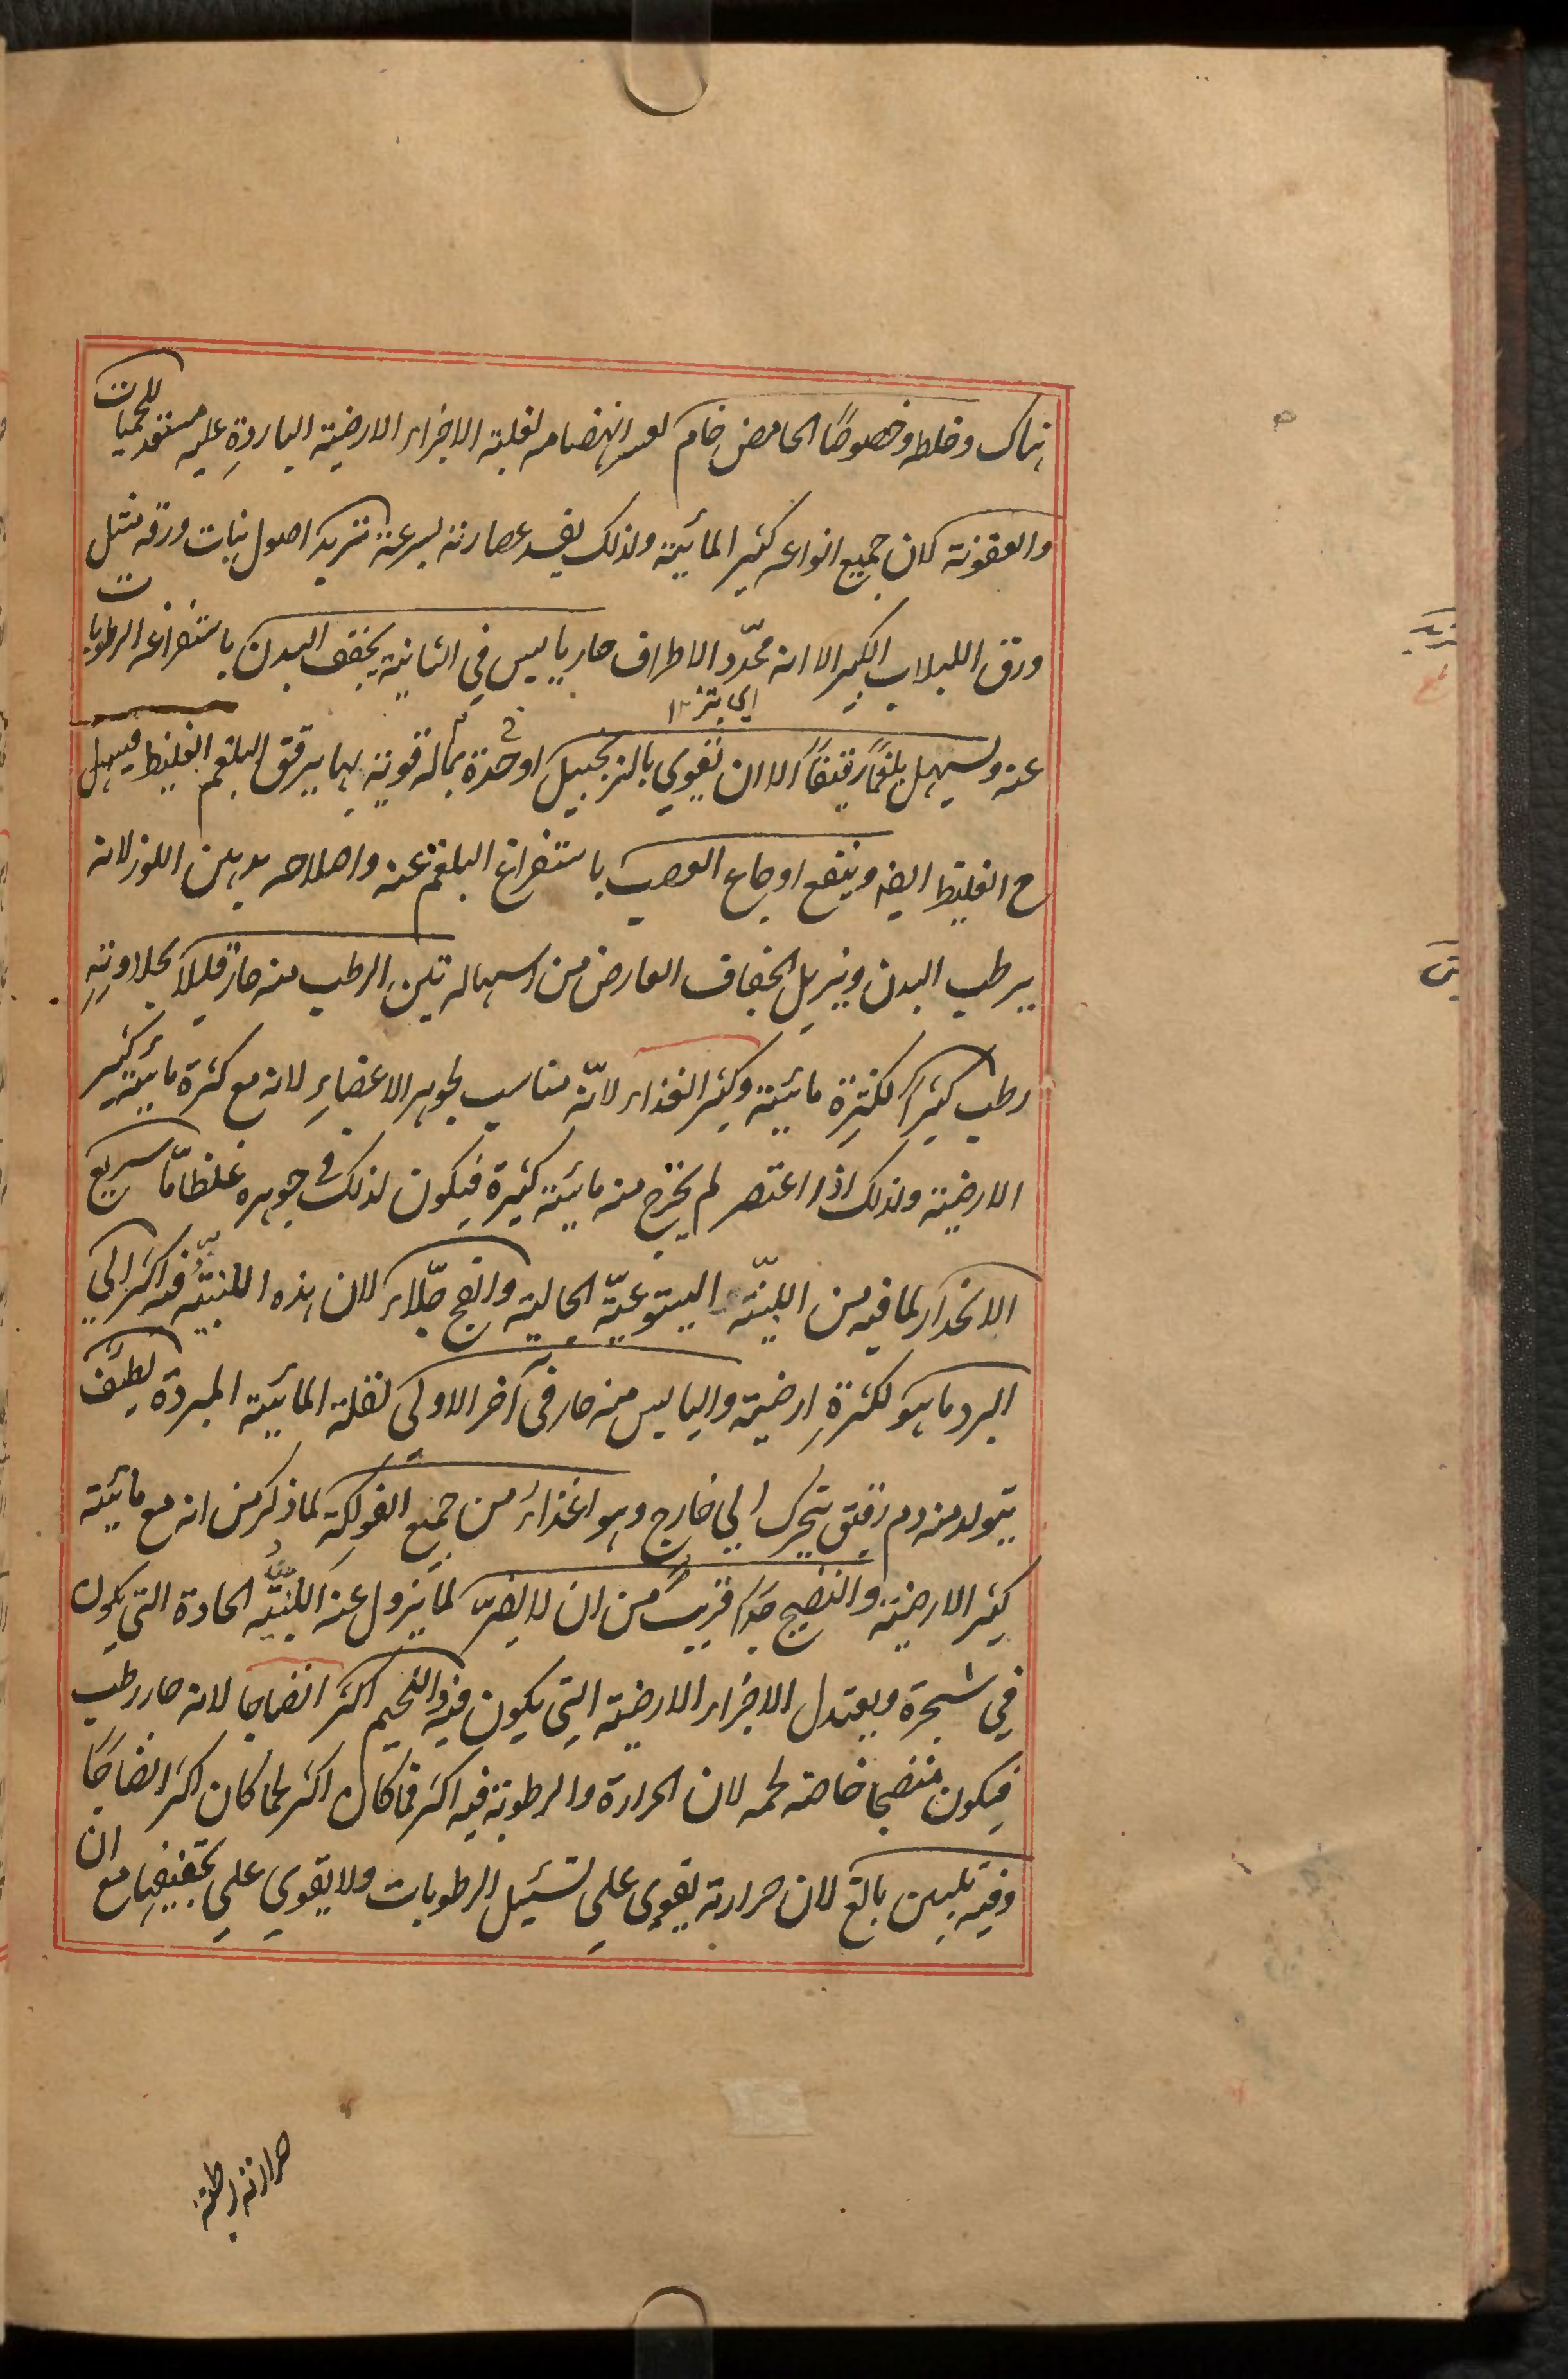 هناك وخلطه وخصوصًا الحامض خام لعسر انهضامه لغلبة الاجزاء الارضية الباردةِ عليه مستعد للحميات
والعفونة لان جميع انواعه كثير المائية ولذلك يفسد عصارته بسرعة تربد اصول نبات ورقه مثل
ورق اللبلاب الكبير الا انه محدّد الاطراف حار يابس في الثانية يجفف البدن باستفراغه الرطوبات
عنه ويسهل بلغمًا رقيقًا الا ان يقوي بالزنجبيل او حدة بماله قوية بها يرقق البلغم الغليظ فيسهل
اي بتز ١٢
ح الغليظ ايضه وينفع اوجاع العصب باستفراغ البلغم عنه واصلاحه بدهن اللوز لانه
يرطب البدن ويزيل الجفاف العارض من اسهاله تين الرطب منه حار قليلًا بحلاوتهِ
رطب كثيرًا لكثرة مائيته وكثير الغذاء لانّه مناسب لجوهر الاعضاءِ لانه مع كثرة مائيته كثير
الارضية ولذلك اذا اعتصر لم يخرج منه مائية كثيرة فيكون لذلك في جوهره غلظ امّا سريع
الانحدار لما فيه من اللبنيّة اليتوعيّة الجالية والفج جلّاء لان هذه اللبنيّة فيه اكثر الي
البرد ما هو لكثرةِ ارضيته واليابس منه حار في آخر الاولى لقلة المائية المبردة لطيف
يتولد منه دم رقيق يتحرك الي خارج وهو اغذاء من جميع الفواكه لما ذكر من انه مع مائيته
كثير الارضية والنضيج جدًا قريب من ان لا يضرّ لما يزول عنه اللبنيّة الحادة التي يكون
في شجرة ويعتدل الاجزاء الارضية التي يكون فيه واللحيم اكثر انضاجا لانه حار رطب
فيكون منضجا خاصة لحمه لان الحرارة والرطوبة فيه اكثر فما كان اكثر لحما كان اكثر انضاجًا
وفيه تليين بالغ لان حرارته يقوى علي تسئيل الرطوبات ولا يقوي علي تجفيفها مع ان
حرارته رطبة